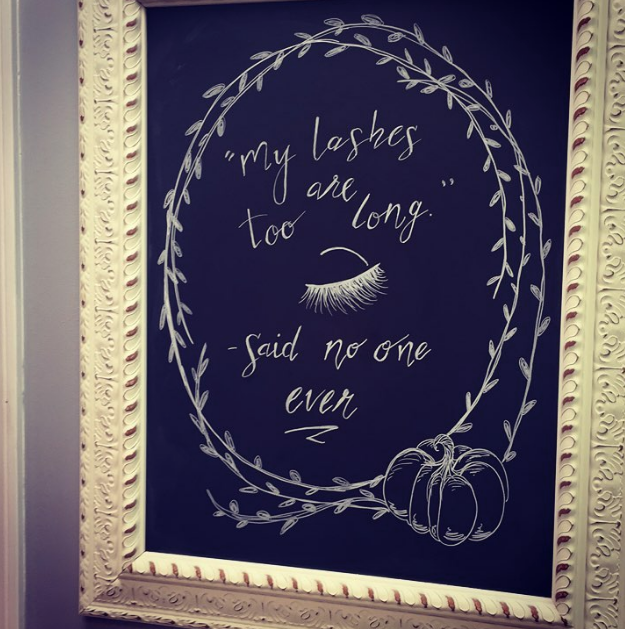 "my lashes
are
too long."
-said no one
ever